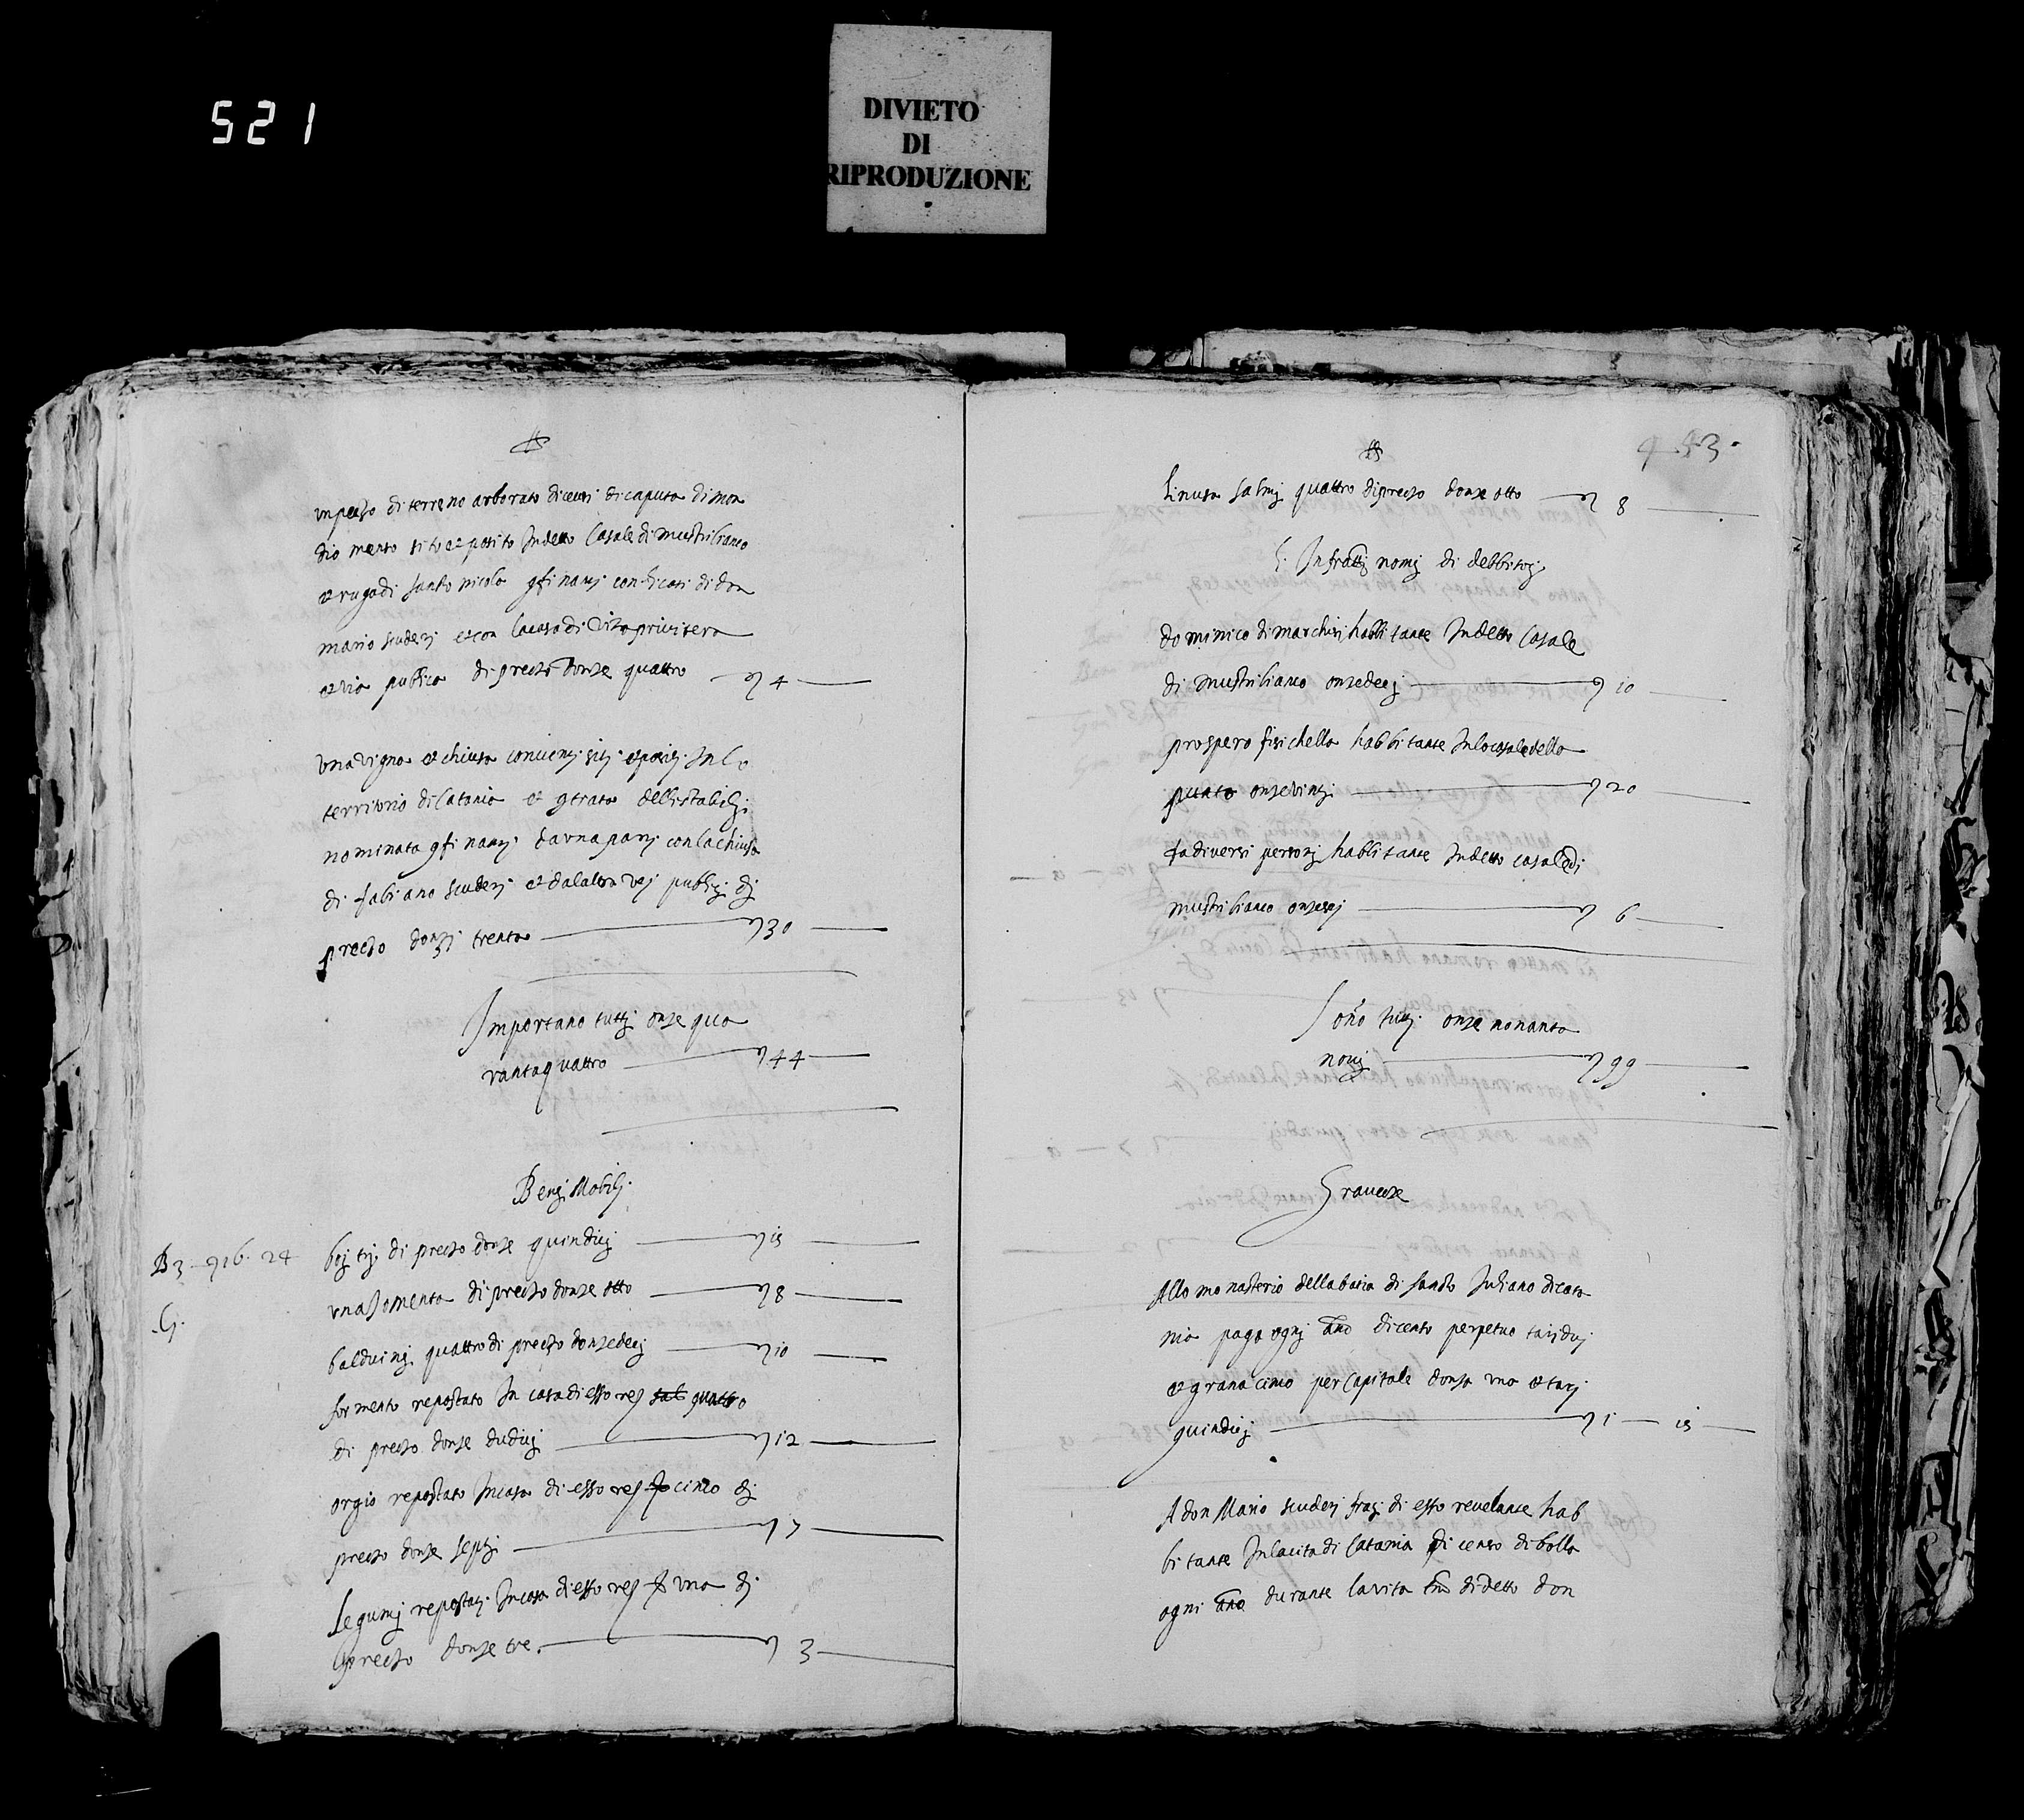 521
DIVIETO
DI
RIPRODUZIONE
un pezzo di terreno arborato di ceusi di caputa di mon
dio menzo sito et posito In detto Casale di mustriliano
et ruga di santo nicola gfinanti con li casi di don
mario scuderi et con la casa di Vito privitera
et via publica di prezzo donze quattro 4
una vigna et chiusa convicini siti et positi In lo
territorio di Catania et gtrata delli stabili
nominata gfinanti da una parti con la chiusa
di fabiano scuderi et dalaltra vij publici di
prezzo donzi trenta 30
Importano tutti onze qua
ranta quattro 44
Beni Mobili
B 3 916. 24
boi trij di prezzo donze quindici 15
una Jomenta di prezzo donze otto 8
balduini quattro di prezzo donze deci 10
formento repostato In casa di esso rev sal quattro
di prezzo donze dudici 12
orgio repostato In casa di esso rev cinco di
prezzo donze septi 7
Legumi repostati In casa di esso rev una di
prezzo donze tre. 3
453
linusa salmi quattro di prezzo donze otto 8
L'Infratti nomi di debbitori
dominico di marchisi habbitante In detto Casale
di mustriliano onze deci 10
prospero fisichella habbitante In lo casale della
punta onze vinti 20
da diversi personi habbitante In detto casale di
mustriliano onze sei 6
Sono tutti onze nonanta
novi 99
Gravezze
Allo monasterio della batia di santo Juliano di cata
nia paga ogni anno di cento perpetuo tarì dui
et grana cinco per Capitale donza una et tarì
quindici 1 15
A don Mario scuderi frati di esso revelante hab
bitante In la cita di Catania di censo di bolla
ogni anno durante la vita di detto don